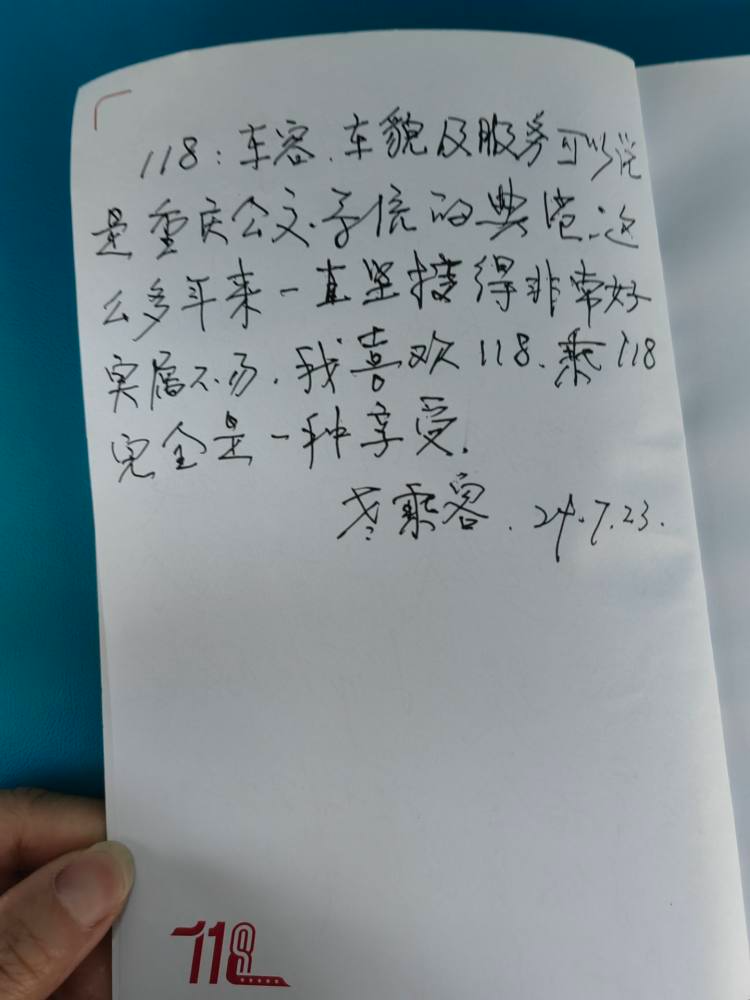 118：车容、车貌及服务可以说
是重庆公交系统的典范.这
么多年来一直坚持得非常好
实属不易.我喜欢118.乘118
完全是一种享受.
老乘客.24.7.23.
118